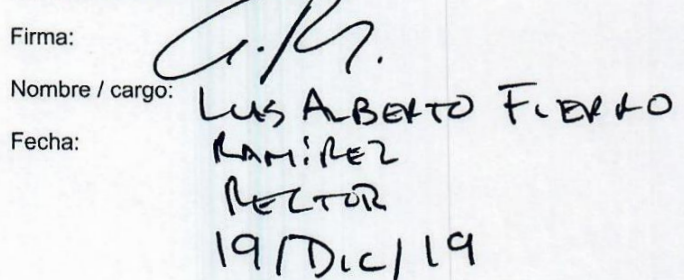 Firma:
Nombre / cargo: LUIS ALBERTO FIERRO
Fecha: RAMÍREZ
RECTOR
19/DIC/19